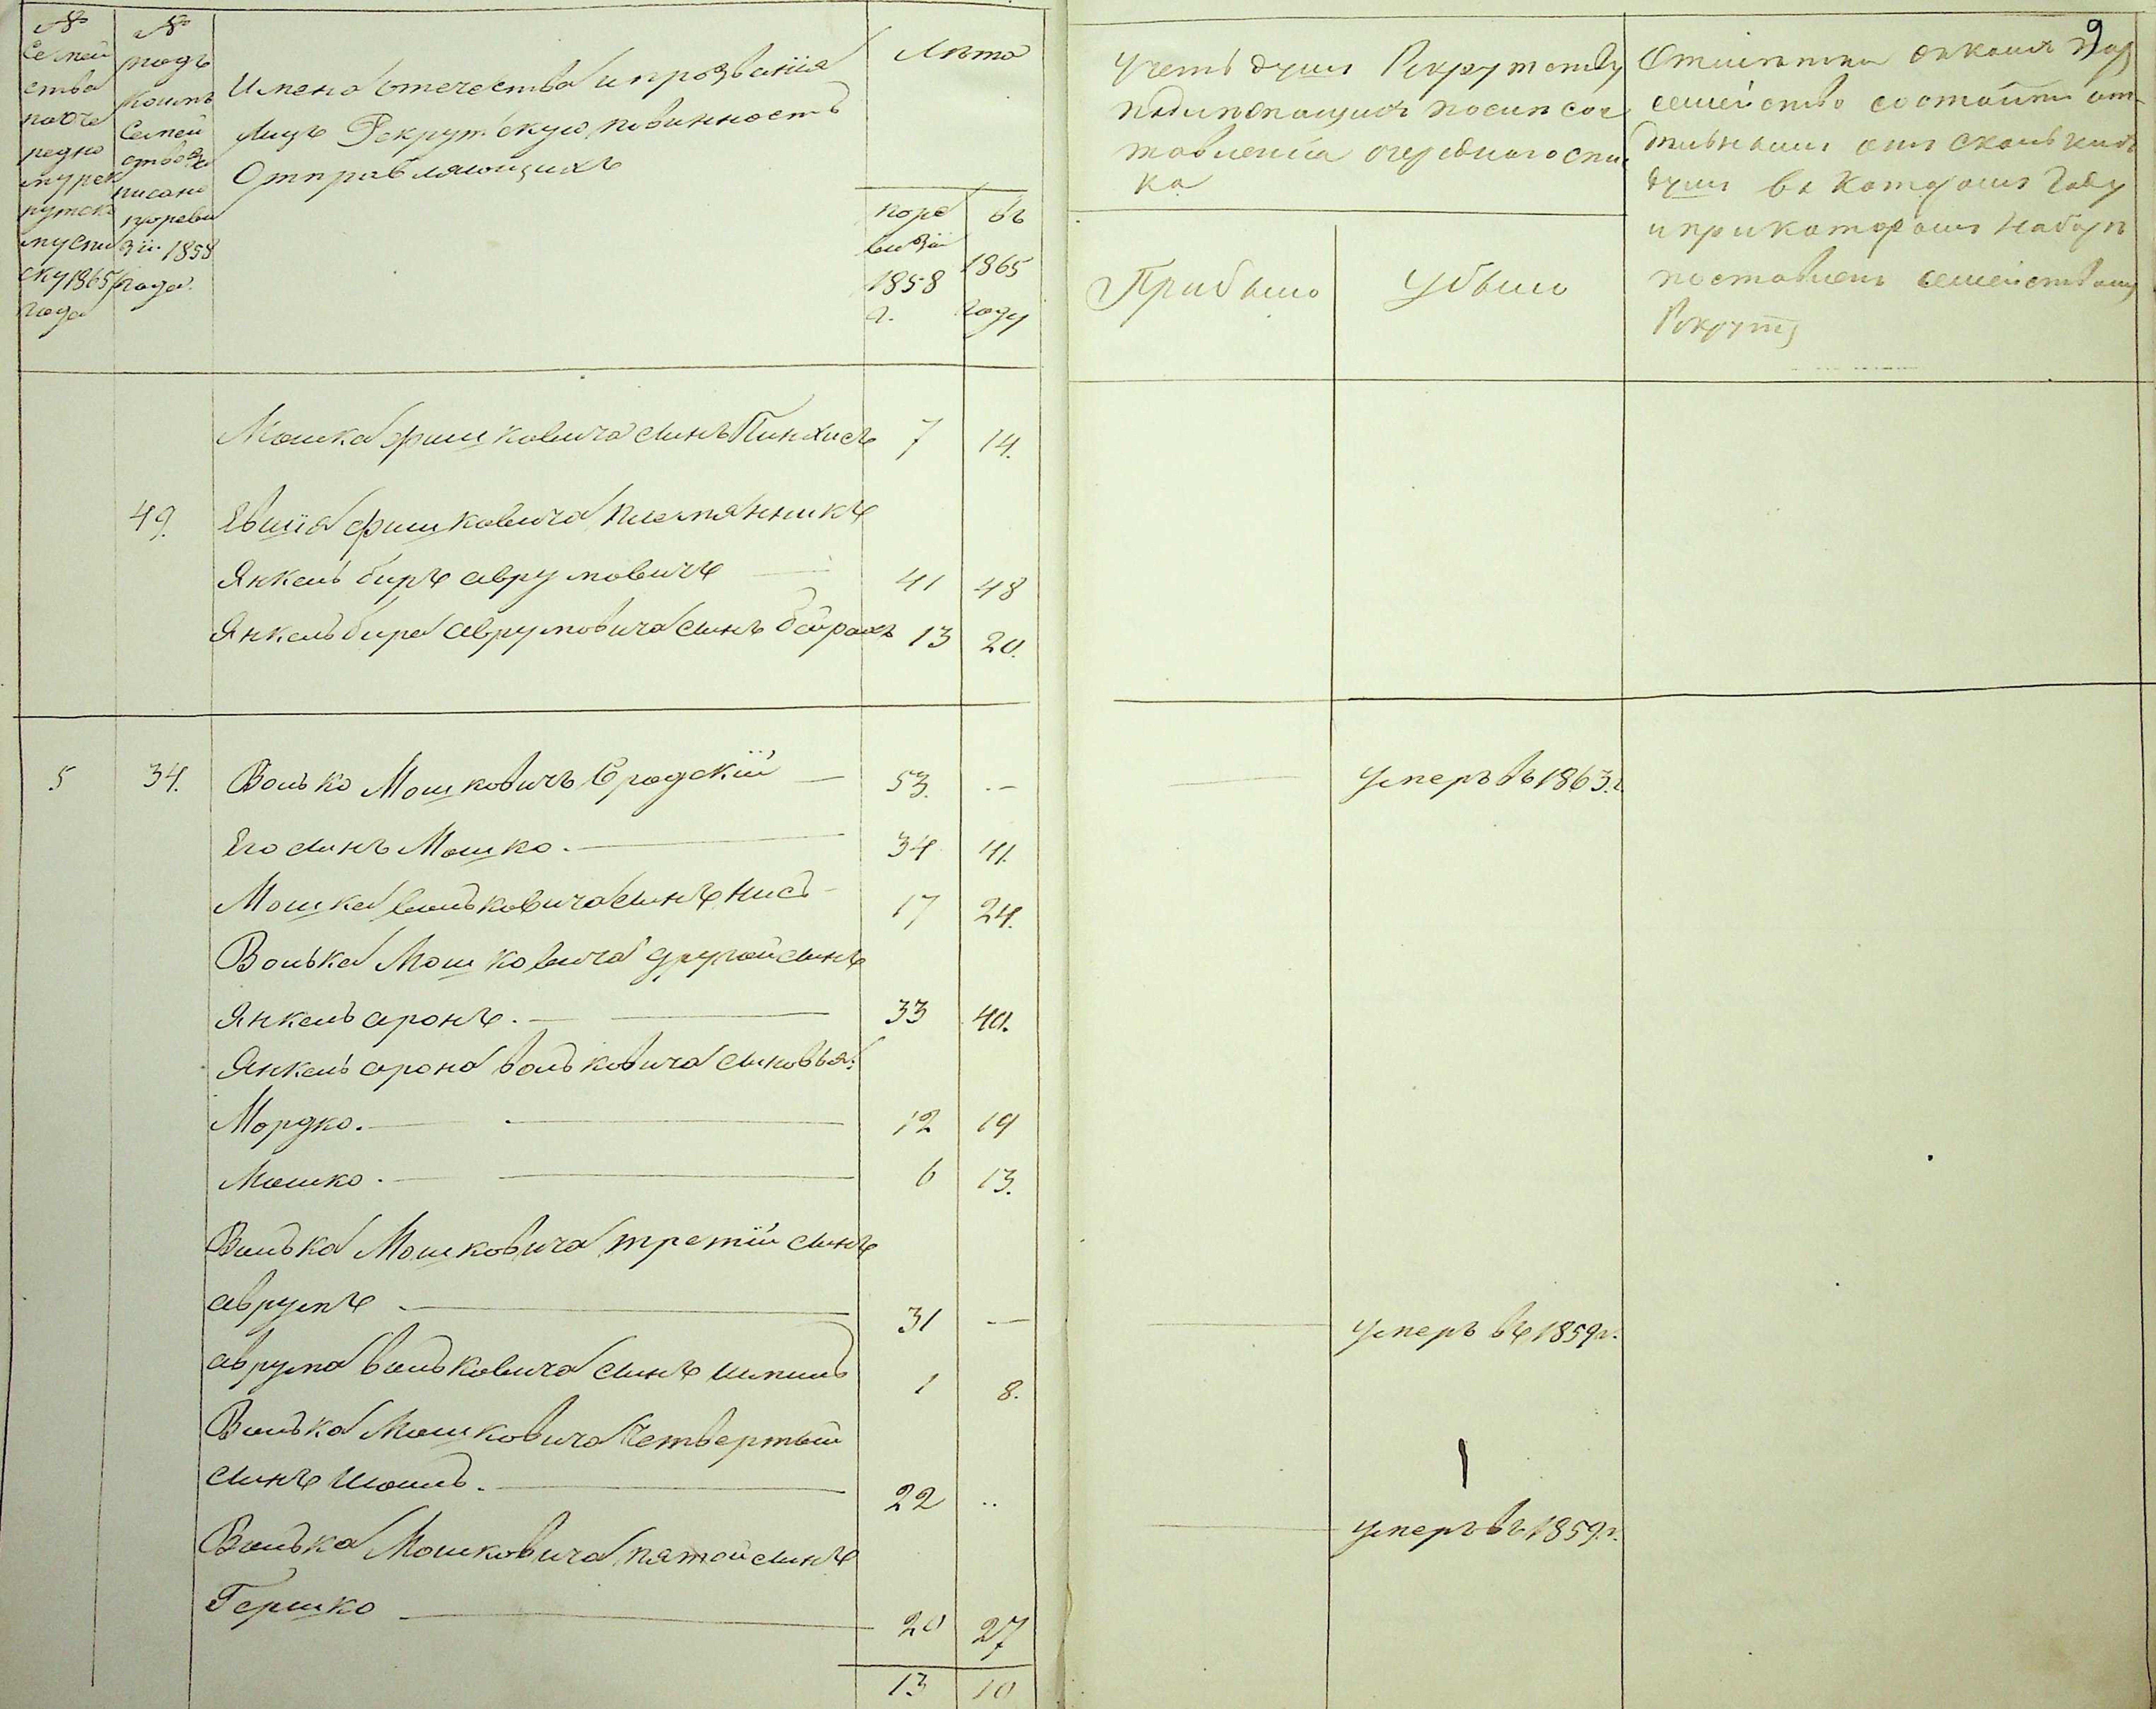 №
Семей
ства
по оче
редно
му рек
рутско
му спи
ску 1865
года
№
подъ
коимъ
Семей
ство за
писано
по реви
зіи 1858
года.
Имена отечества и прозванія
Лицъ Рекрутскую повинность
Отправляющихъ
Лѣта
по ре
визіи
1858
г.
въ
1865
году
Учетъ душъ Рекрутству
подлежащихъ послѣ сос
тавленія очереднаго спис
ка
Прибыло
Убыло
9
Отмѣтки
семейство состоитъ от
душъ въ которомъ году
и при которомъ наборѣ
поставленъ семействомъ
Рекрутъ
Мошка Фишковича синъ Пинхисъ 7 14.
49. Евшія Фишковича племянникъ
Янкель биръ аврумовичъ 41 48
Янкель бира аврумовича синъ бейрахъ 13 20.
5 34. Волько Мошковичъ Бродскій 53. — умеръ въ 1863.г.
Его синъ Мошко. 34 41.
Мошка вольковича синъ Нисъ 17 24.
Волька Мошковича другой синъ
Янкель аронъ. 33 40.
Янкель арона вольковича синовья:
Мордко. 12 19
Мошко. 6 13.
Волька Мошковича третій синъ
аврумъ 31 — умеръ въ 1859г.
аврума вольковича синъ шмиль 1 8.
Волька Мошковича четвертый
синъ Шоилъ. 22 .. умеръ въ 1859.г.
Волька Мошковича пятой синъ
Гершко 20 27
13 10